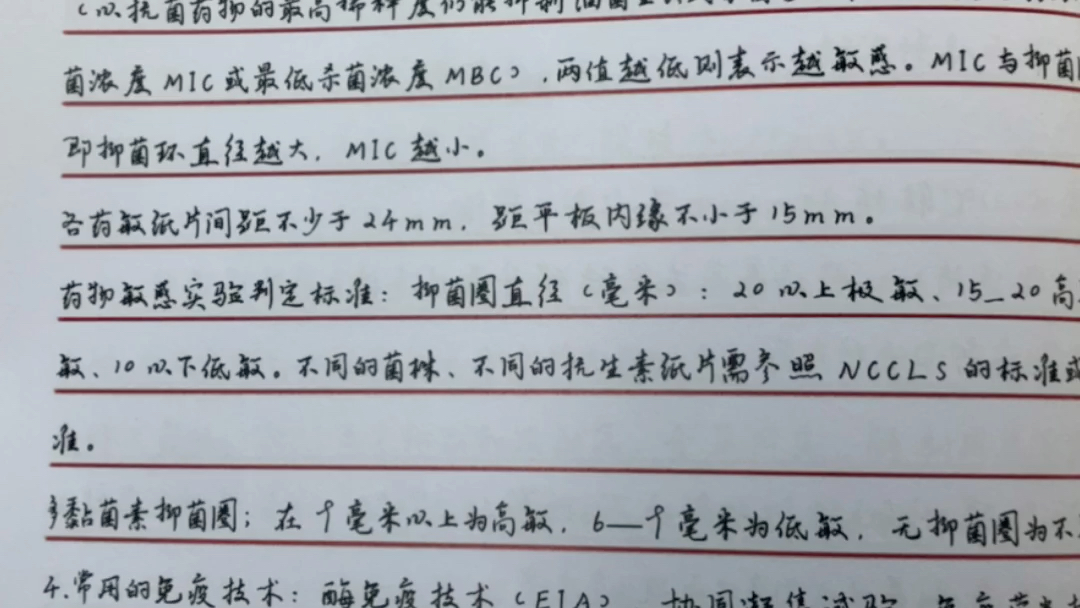 (以抗菌药物的最高稀释度仍能抑制细菌
菌浓度MIC或最低杀菌浓度MBC),两值越低则表示越敏感。MIC与抑菌
即抑菌环直径越大,MIC越小。
各药敏纸片间距不少于24mm,距平板内缘不小于15mm。
药物敏感实验判定标准:抑菌圈直径(毫米):20以上极敏、15—20高
敏、10以下低敏。不同的菌株、不同的抗生素纸片需参照NCCLS的标准或
准。
多黏菌素抑菌圈;在9毫米以上为高敏,6—9毫米为低敏,无抑菌圈为不
4.常用的免疫技术:酶免疫技术(EIA)、协同凝集试验、免疫荧光